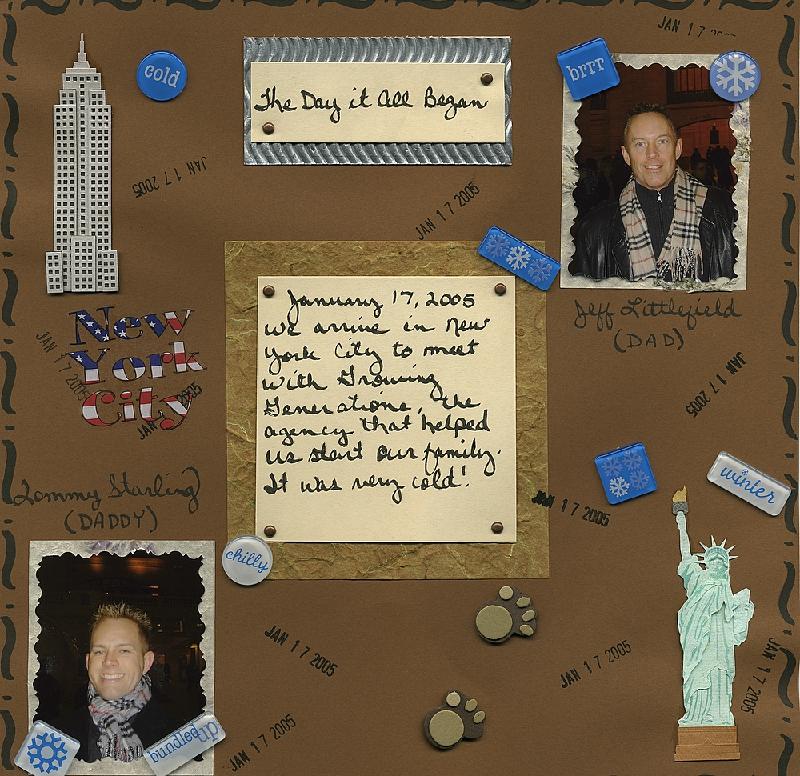 JAN 17
cold
The Day it All Began
brrr
JAN 17 2005
JAN 17 2005
January 17, 2005
we arrive in New
York City to meet
with Growing
Generations, the
agency that helped
us start our family.
It was very cold!
Jeff Littlefield
(DAD)
New
York
City
JAN 17 2005
JAN 17 2005
JAN 17 2005
Tommy Starling
(DADDY)
winter
JAN 17 2005
chilly
JAN 17 2005
JAN 17 2005
JAN 17 2005
JAN 17 2005
bundled up